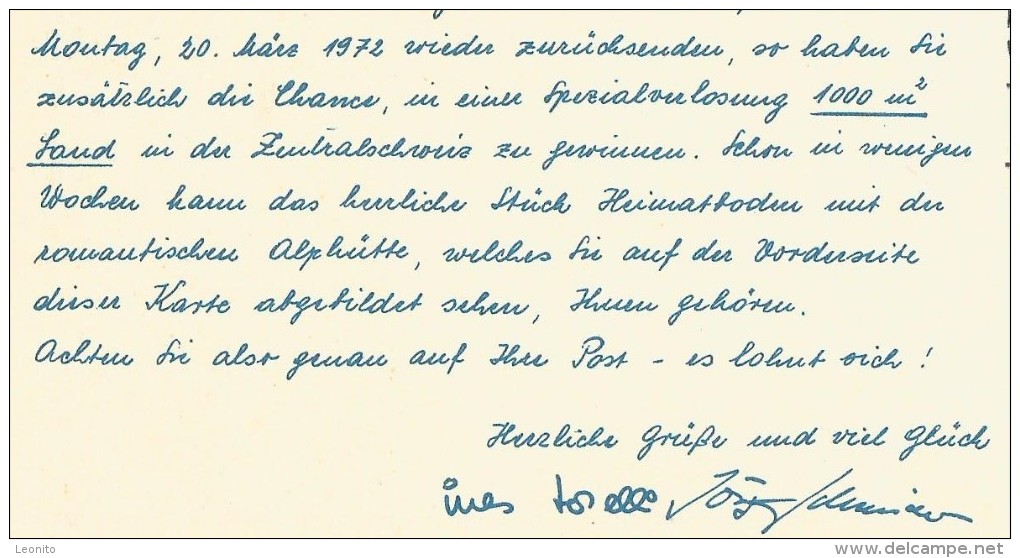 Montag, 20. März 1972 wieder zurücksenden, so haben Sie
zusätzlich die Chance, in einer Spezialverlosung 1000 m²
Land in der Zentralschweiz zu gewinnen. Schon in wenigen
Wochen kann das herrliche Stück Heimatboden mit der
romantischen Alphütte, welches Sie auf der Vorderseite
dieser Karte abgebildet sehen, Ihnen gehören.
Achten Sie also genau auf Ihre Post - es lohnt sich!
Herzliche Grüße und viel Glück
ines torelli
Leonito
delcampe.net